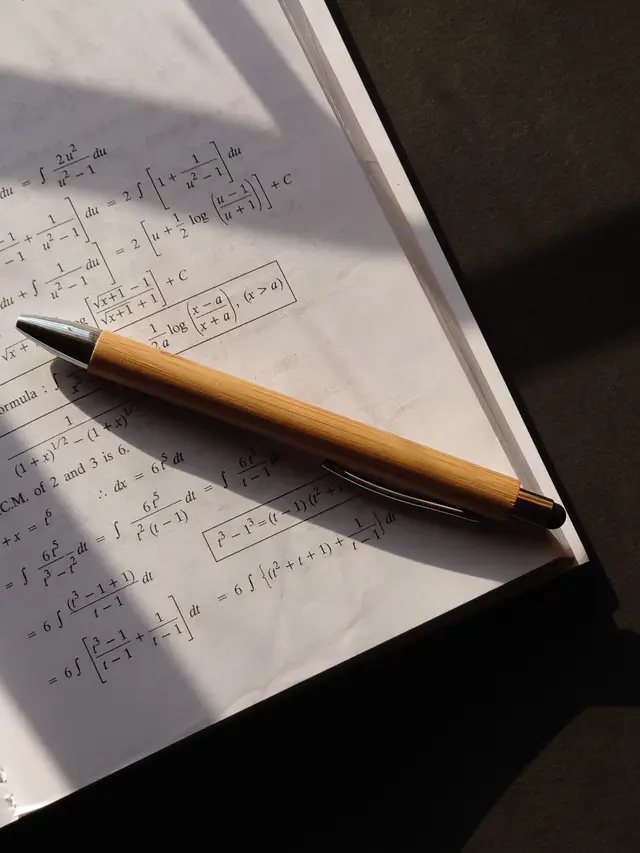 du = ∫ 2u²/(u² − 1) du = 2 ∫ [1 + 1/(u² − 1)] du
−1/−1 + 1/(u² − 1)] du = 2 [u + 1/2 log ((u − 1)/(u + 1))] + C
du + ∫ 1/(u² − 1) du]
[(√x+1 − 1)/(√x+1 + 1)] + C
ormula : ∫ 1/2a log ((x − a)/(x + a)), (x > a)
1/((1 + x)^1/2 − (1 + x)^1/
.C.M. of 2 and 3 is 6.
+ x = t⁶ ∴ dx = 6t⁵ dt
= ∫ 6t⁵/(t³ − t²) dt = ∫ 6t⁵/(t² (t − 1)) dt = ∫ 6t³/(t − 1) dt
= 6 ∫ (t³ − 1 + 1)/(t − 1) dt t³ − 1³ = (t − 1) (t² + t
= 6 ∫ [(t³ − 1)/(t − 1) + 1/(t − 1)] dt = 6 ∫ {(t² + t + 1) + 1/(t − 1)} dt